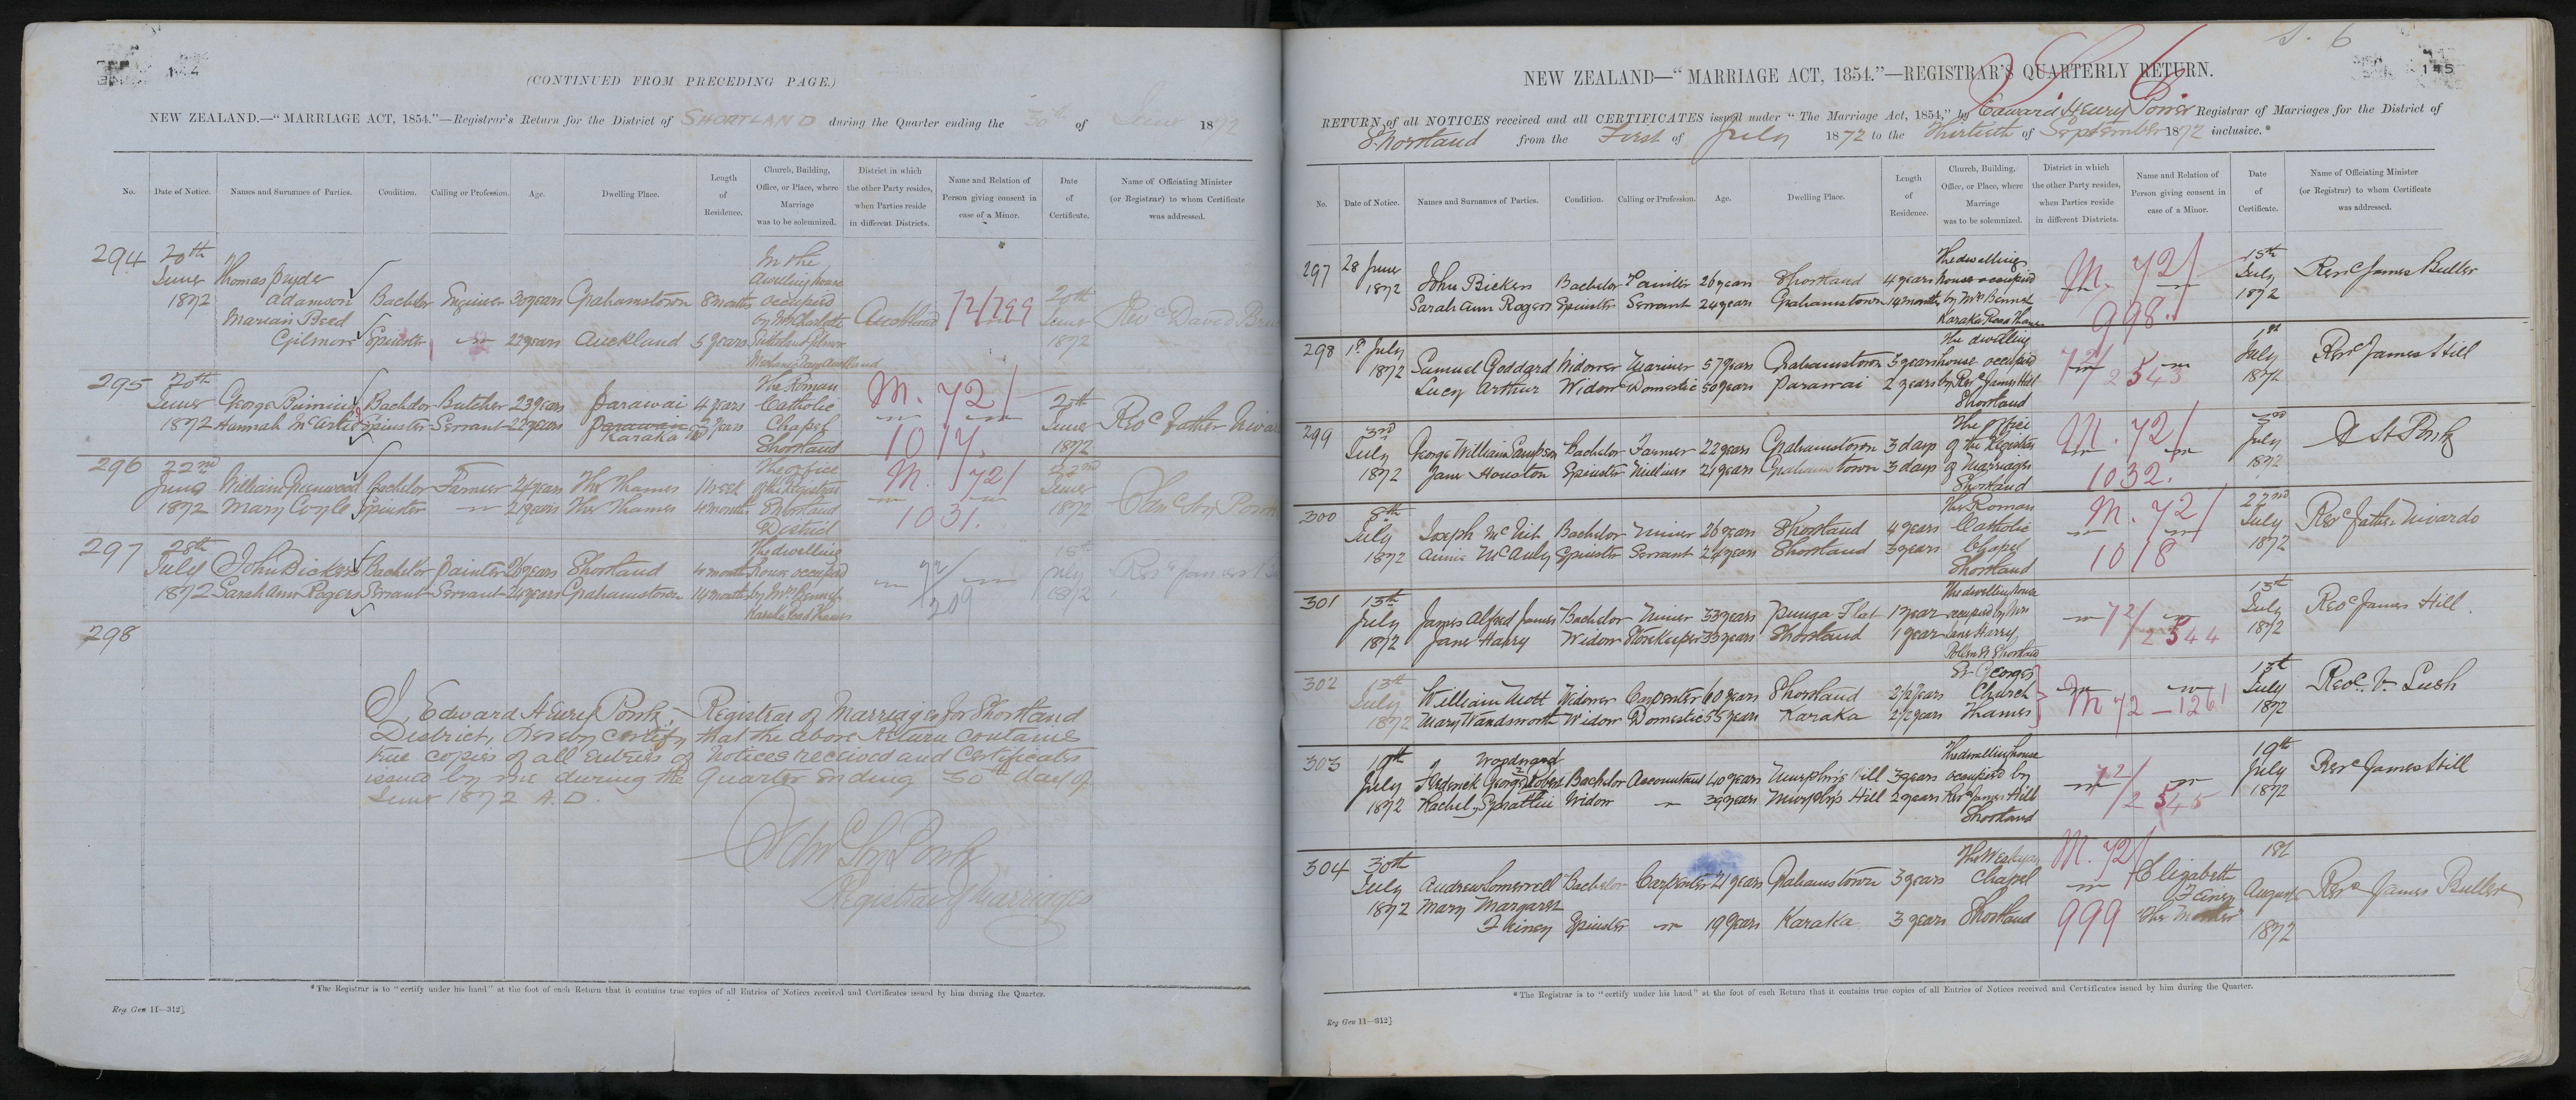 (CONTINUED FROM PRECEDING PAGE.)
NEW ZEALAND.—"MARRIAGE ACT, 1854."—Registrar's Return for the District of SHORTLAND during the Quarter ending the 30th of June 1872
No. Date of Notice. Names and Surnames of Parties. Condition. Calling or Profession. Age. Dwelling Place. Length of Residence. Church, Building, Office, or Place, where Marriage was to be solemnized. District in which the other Party resides, when Parties reside in different Districts. Name and Relation of Person giving consent in case of a Minor. Date of Certificate. Name of Officiating Minister (or Registrar) to whom Certificate was addressed.
294 20th June 1872
Thomas Pryde Adamson Bachelor Engineer 30 years Grahamstown 8 months
Marian Reed Gilmore Spinster 22 years Auckland 5 years
In the dwelling house occupied by Mrs Charlotte
Auckland 72/799 20th June 1872 Revd David
295 20th June 1872
George Bachelor Butcher 23 years Parawai 4 years
Hannah Spinster Servant 22 years Parawai Karaka 2 years
The Roman Catholic Chapel Shortland
M. 72/1017. June 1872 Revd Father
296 22nd June 1872
William Greenwood Bachelor Farmer 24 years The Thames 1 week
Mary Coyle Spinster 21 years The Thames 4 months
The office of the Registrar Shortland District
M. 72/1031. 22nd June 1872
297 28th July 1872
John Bickers Bachelor Painter 26 years Shortland 4 months
Sarah Ann Rogers Servant Servant 24 years Grahamstown 14 months
The dwelling house occupied by Mrs Bennet Karaka Road Thames
72/209 15th July 1872 Revd James
298
I, Edward Henry Registrar of Marriages for Shortland
District, hereby certify that the above Return contains
true copies of all Entries of Notices received and Certificates
issued by me during the Quarter ending 30th day of
June 1872 A.D.
Registrar of Marriages
*The Registrar is to "certify under his hand" at the foot of each Return that it contains true copies of all Entries of Notices received and Certificates issued by him during the Quarter.
Reg Gen 11—312]
S. 6
145
NEW ZEALAND—"MARRIAGE ACT, 1854."—REGISTRAR'S QUARTERLY RETURN.
RETURN of all NOTICES received and all CERTIFICATES issued under "The Marriage Act, 1854," by Edward Henry Power Registrar of Marriages for the District of
Shortland from the First of July 1872 to the Thirtieth of September 1872 inclusive.*
No. Date of Notice. Names and Surnames of Parties. Condition. Calling or Profession. Age. Dwelling Place. Length of Residence. Church, Building, Office, or Place, where Marriage was to be solemnized. District in which the other Party resides, when Parties reside in different Districts. Name and Relation of Person giving consent in case of a Minor. Date of Certificate. Name of Officiating Minister (or Registrar) to whom Certificate was addressed.
297 28 June 1872
John Bickers Bachelor Painter 26 years Shortland 4 years
Sarah Ann Rogers Spinster Servant 24 years Grahamstown 14 months
The dwelling house occupied by Mrs Bennet Karaka Road Thames
M. 72/998. 15th July 1872 Revd James Buller
298 1st July 1872
Samuel Goddard Widower Mariner 57 years Grahamstown 3 years
Lucy Arthur Widow Domestic 50 years Parawai 2 years
The dwelling house occupied by Revd James Hill Shortland
72/2543 1st July 1872 Revd James Hill
299 3rd July 1872
George William Bachelor Farmer 22 years Grahamstown 3 days
Jane Houston Spinster Milliner 21 years Grahamstown 3 days
The office of the Registrar of Marriages Shortland
M. 72/1032. 3rd July 1872
300 8th July 1872
Joseph Bachelor Miner 26 years Shortland 4 years
Annie McAuly Spinster Servant 24 years Shortland 3 years
The Roman Catholic Chapel Shortland
M. 72/1018 22nd July 1872 Revd Father Nivardo
301 13th July 1872
James Alfred James Bachelor Miner 33 years Punga Flat 1 year
Jane Harry Widow Storekeeper 33 years Shortland 1 year
The dwelling house occupied by Mrs Jane Harry Pollen St Shortland
72/2544 13th July 1872 Revd James Hill.
302 13th July 1872
William Mott Widower Carpenter 60 years Shortland 2½ years
Mary Wandsworth Widow Domestic 55 years Karaka 2½ years
St Georges Church Thames
M 72—1261 13th July 1872 Revd V. Lush
303 19th July 1872
Woodward
Frederick George Robert Bachelor Accountant 40 years Murphy's Hill 3 years
Rachel Widow 39 years Murphy's Hill 2 years
The dwelling house occupied by Revd James Hill Shortland
72/2545 19th July 1872 Revd James Hill
304 30th July 1872
Andrew Somerrell Bachelor Carpenter 21 years Grahamstown 3 years
Mary Margaret Spinster 19 years Karaka 3 years
The Wesleyan Chapel Shortland
M. 72/999 Elizabeth The Mother 1st August 1872 Revd James Buller
*The Registrar is to "certify under his hand" at the foot of each Return that it contains true copies of all Entries of Notices received and Certificates issued by him during the Quarter.
Reg Gen 11—312]